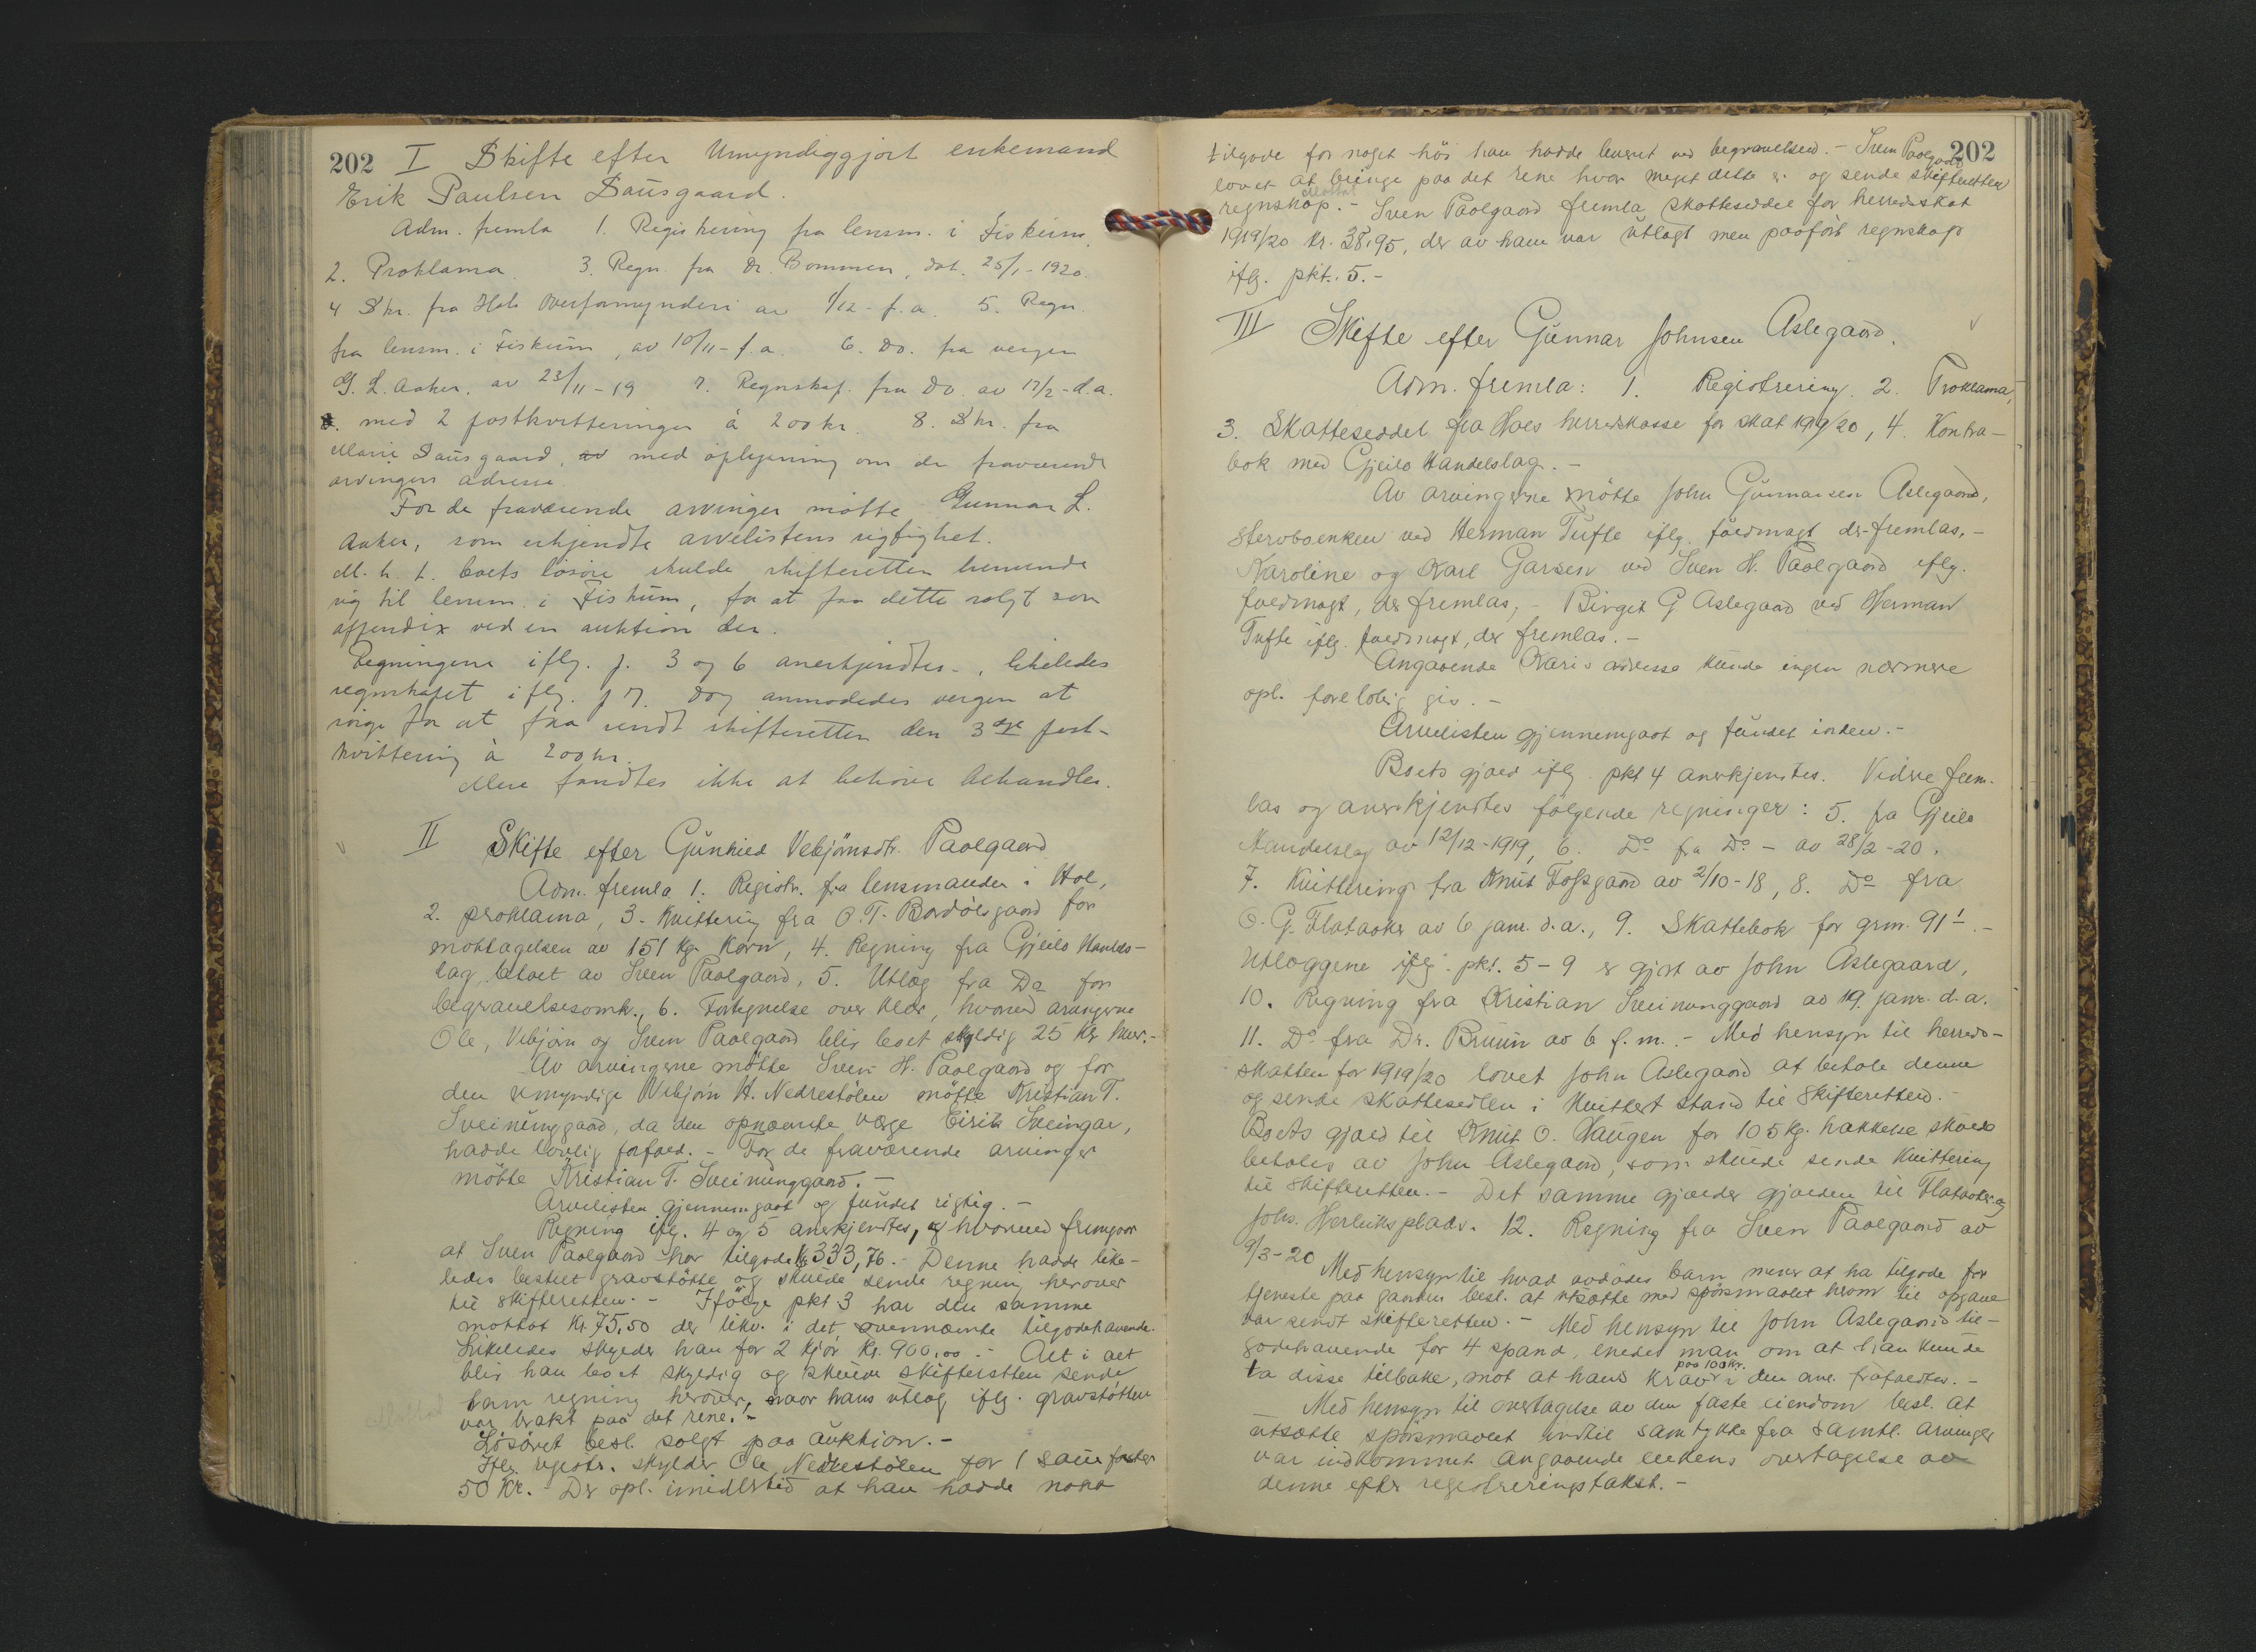 202 I Skifte efter Umyndiggjort enkemand
Erik Paulsen Sausgaard.
Adm. fremla 1. Registrering fra lensm. i Fiskum
2. Proklama. 3. Regn. fra Dr. Bommen, dat. 25/1-1920.
4 Skr. fra Hols Overformynderi av 1/12-f.a. 5. Regn.
fra lensm. i Fiskum, av 10/11-f.a. 6. Do. fra vergen
G. L. Aaker, av 23/11-19 7. Regnskap. fra Do. av 17/2-d.a.
med 2 postkvitteringer à 200 kr. 8. Skr. fra
Marie Sausgaard, med oplysning om de fraværende
arvingers adresse.
For de fraværende arvinger mötte Gunnar L.
Aaker, som erkjendte arvelistens rigtighet.
M. h. t. boets lösöre skulde skifteretten henvende
sig til lensm. i Fiskum, for at faa dette solgt som
appendix ved en auktion der.
Regningene iflg. p. 3 og 6 anerkjendtes, likeledes
regnskapet iflg. p 7. dog anmodedes vergen at
sörge for at faa sendt skifteretten den 3die post-
kvittering à 200 kr.
Mere fandtes ikke at behöve behandles.
II Skifte efter Gunhild Vebjörnsdtr. Paalgaard
Adm. fremla 1. Registr. fra lensmanden i Hol,
2. proklama, 3. Kvittering fra O. T. Bardölsgaard for
mottagelsen av 151 kg. Korn, 4. Regning fra Gjeilo Handels-
lag, betalt av Sven Paalgaard, 5. Utlæg fra Do for
begravelsesomk., 6. Fortegnelse over klær, hvorved arvingerne
Ole, Vebjörn og Sven Paalgaard blir boet skyldig 25 Kr hver.-
Av arvingerne mötte Sven H. Paalgaard og for
den umyndige Vebjörn H. Nedrestölen mötte Kristian T.
Sveinunggaard, da den opnævnte værge Eirik Sveingar,
hadde lovlig forfald. - For de fraværende arvinger
mötte Kristian T. Sveinunggaard. -
Arvelisten gjennemgaat og fundet rigtig. -
Regning iflg. 4 og 5 anerkjendtes, og hvorved fremgaar
at Sven Paalgaard har tilgode Kr 333,76. - Denne hadde like-
ledes bestilt gravstötte og skulde sende regning herover
til skifteretten. - Ifölge pkt 3 har den samme
mottat Kr. 75,50 der likv. i det ovennævnte tilgodehavende.
Likeledes skylder han for 2 kjör Kr. 900,00 - Alt i alt
blir han boet skyldig og skulde skifteretten sende
ham regning herover, naar hans utlæg iflg. gravstötten
var brakt paa det rene. -
Lösöret besl. solgt paa auktion. -
Iflg. registr. skylder Ole Nedrestölen for 1 sau
50 Kr. - Der opl. imidlertid at han hadde noko
202
tilgode for noget höi han hadde levert ved begravelsen. - Sven Paalgaard
lovet at bringe paa det rene hvor meget dette er og sende skifteretten
regnskap. - Sven Paalgaard fremla skatteseddel for herredsskat
1919/20 Kr. 38,95, der av ham var utlagt men paafört regnskap
iflg. pkt. 5. -
III Skifte efter Gunnar Johnsen Aslegaard.
Adm. fremla: 1. Registrering. 2. Proklama,
3. Skatteseddel fra Hols herredskasse for skat 1919/20, 4. Kontra-
bok med Gjeilo Handelslag. -
Av arvingerne mötte John Gunnarsen Aslegaard,
stervboenken ved Herman Tufte iflg. fuldmagt der fremlas, -
Karoline og Karl Garsen ved Sven H. Paalgaard iflg.
fuldmagt, der fremlas, - Birget G Aslegaard ved Herman
Tufte iflg. fuldmagt, der fremlas. -
Angaaende Karis adresse kunde ingen nærmere
opl. forelöbig gis. -
Arvelisten gjennemgaat og fundet i orden. -
Boets gjæld iflg. pkt 4 anerkjendtes. Videre frem-
las og anerkjendtes fölgende regninger: 5. fra Gjeilo
Handelslag av 12/12-1919, 6. Do fra Do - av 28/2-20.
7. Kvittering fra Knut Fossgaard av 2/10-18, 8. Do fra
O. G. Flataaker av 6 janr. d.a., 9. Skattebok for grm. 91 1. -
Utlæggene iflg. pkt. 5-9 er gjort av John Aslegaard,
10. Regning fra Kristian Sveinunggaard av 19. janr. d.a.
11. Do fra Dr. Bruun av 6 f.m. - Med hensyn til herreds-
skatten for 1919/20 lovet John Aslegaard at betale denne
og sende skattesedlen i kvittert stand til Skifteretten. -
Boets gjæld til Knut O. Haugen for 105 kg. hakkelse skulde
betales av John Aslegaard, som skulde sende kvittering
til skifteretten. - Det samme gjælder gjælden til Flataaker og
Johs. Herleiksplads. 12. Regning fra Sven Paalgaard av
9/3-20 Med hensyn til hvad avdödes barn mener at ha tilgode for
tjeneste paa gaarden besl. at utsætte med spörsmaalet herom til opgave
var sendt skifteretten. - Med hensyn til John Aslegaards til-
godehavende for 4 spand, enedes man om at han kunde
ta disse tilbake, mot at hans krav paa 100 kr. i den anl. frafaldtes. -
Med hensyn til overtagelse av den faste eiendom besl. at
utsætte spörsmaalet indtil samtykke fra samtl. arvinger
var indkommet angaaende enkens overtagelse av
denne efter registreringstakst. -